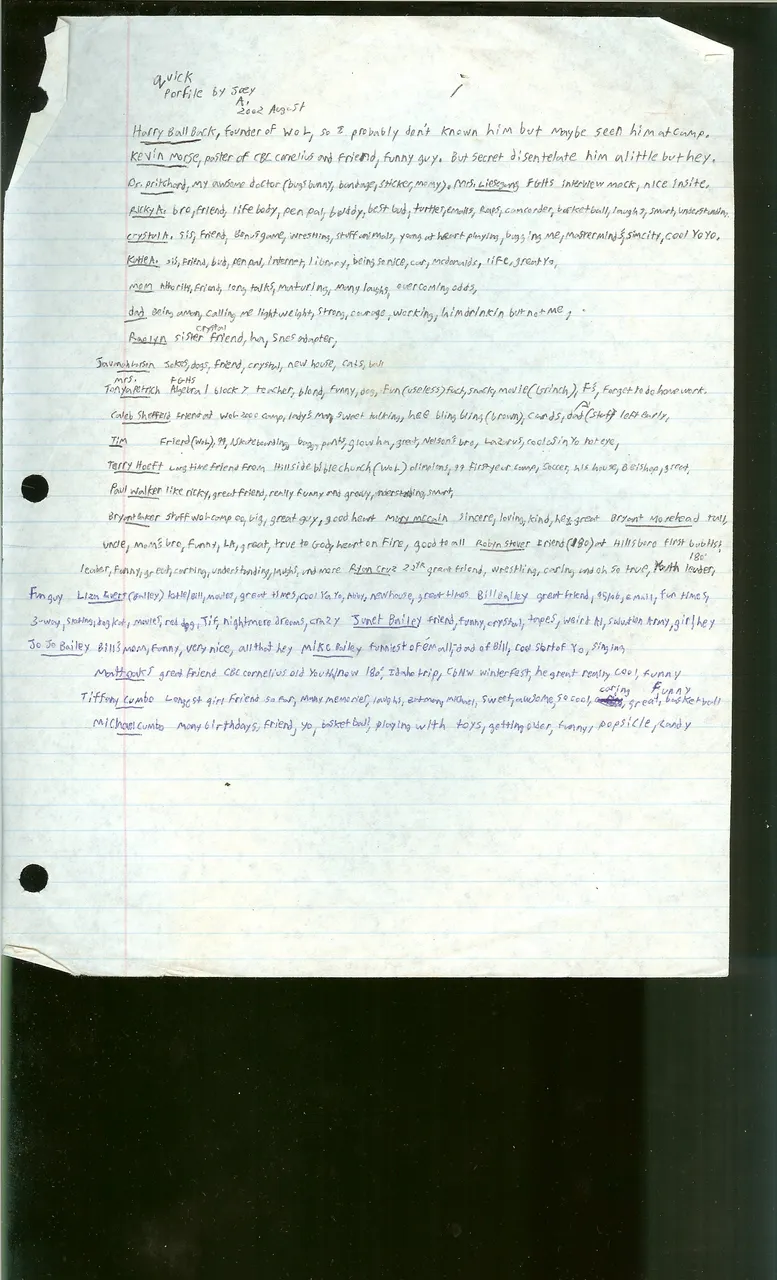 quick
Porfile by Joey
A.
2002 August
Harry Ball Back, founder of WOL, so I probably don't known him but maybe seen him at camp.
Kevin Morse, paster of CBC cornelius and friend, funny guy. But secret disentelate him alittle but hey.
Dr. pritchard, my awsome doctor (bugs bunny, bandage, sticker, momy). Mrs. FGHS interview mock, nice insite.
Ricky A. bro, friend, life body, pen pal, balddy, best bud, turtle, emails, Raps, camcorder, basketball, laughs, smart, understanding.
Crystal A. Sis, friend, Bonus game, wrestling, stuff animals, young at heart playing, bugging me, Mastermind, simcity, cool YoYo.
Katie A. sis, friend, bud, pen pal, Internet, library, being so nice, car, mcdonalds, life, great Yo,
mom Athority, friend, long talks, maturing, many laughs, overcoming odds,
dad Being a man, calling me lightweight, strong, courage, working, him drinkin but not me,
crystal
Raelyn sister friend, ha, Snes adapter,
Jokes, dogs, friend, crystal, new house, cats, ball
mrs. FGHS
Tonya Petrich Algebra 1 block 7 teacher, blond, funny, dog, Fun (useless) fact, snack, movie (Grinch), F's, forget to do homework.
Caleb Sheffeild friend at WOL 2000 camp, lady's man, sweet talking, hee bling bling (brown), cards, dad (staff) left early,
Tim Friend (WOL), 99, skateboarding, baggy pants, glow ha, great, Nelson's bro, Lazarus, cool as in Yo not eye,
Terry Hoeft Long time friend from Hillside bible church (WOL) olimpians, 99 first year camp, Soccer, his house, Beishop, great,
Paul Walker like ricky, great friend, really funny and groovy, understanding, smart,
Bryant Baker stuff wol camp 00, big, great guy, good heart Mary McCain Sincere, loving, kind, hey, great Bryant Morehead tall,
uncle, mom's bro, funny, LA, great, true to God, heart on Fire, good to all Robyn Stover friend (180) at Hillsboro first baptist,
180°
leader, funny, great, carring, understanding, laughs, and more Ryan Cruz 23rd, great friend, wrestling, caring and oh so true, Youth leader,
Fun guy Liza (Bailey) Katie/Bill, movies, great times, cool Ya Yo, new house, great times Bill Bailey great friend, 95/96, email, fun times,
3-way, skating, dog kat, movies, red dog, Tif, nightmare dreams, crazy Janet Bailey friend, funny, crystal, tapes, Weird Al, salvation Army, girl, hey
Jo Jo Bailey Bill's mom, funny, very nice, all that hey Mike Bailey funniest of em all, dad of Bill, cool sort of Yo, singing
Matt oaks great friend CBC cornelius old Youth/now 180°, Idaho trip, CBNW winterfest, he great really cool, funny
caring Funny
Tiffany Cumbo Longest girl friend so far, many memories, laughs, Batmany Michael, sweet, awsome, so cool, great, basketball
Michael Cumbo Many birthdays, friend, yo, basketball, playing with toys, getting older, funny, popsicle, Randy